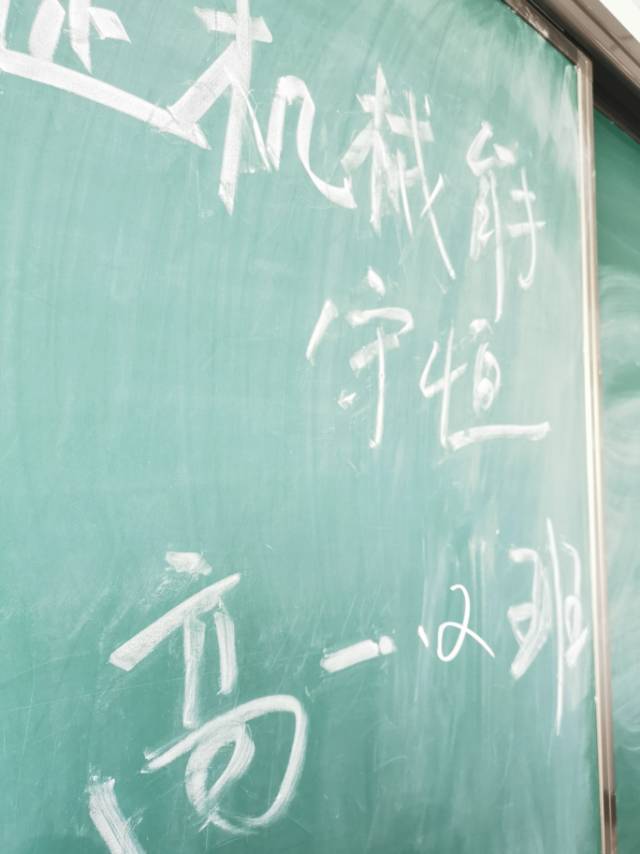 机械能
守恒
高一、2班